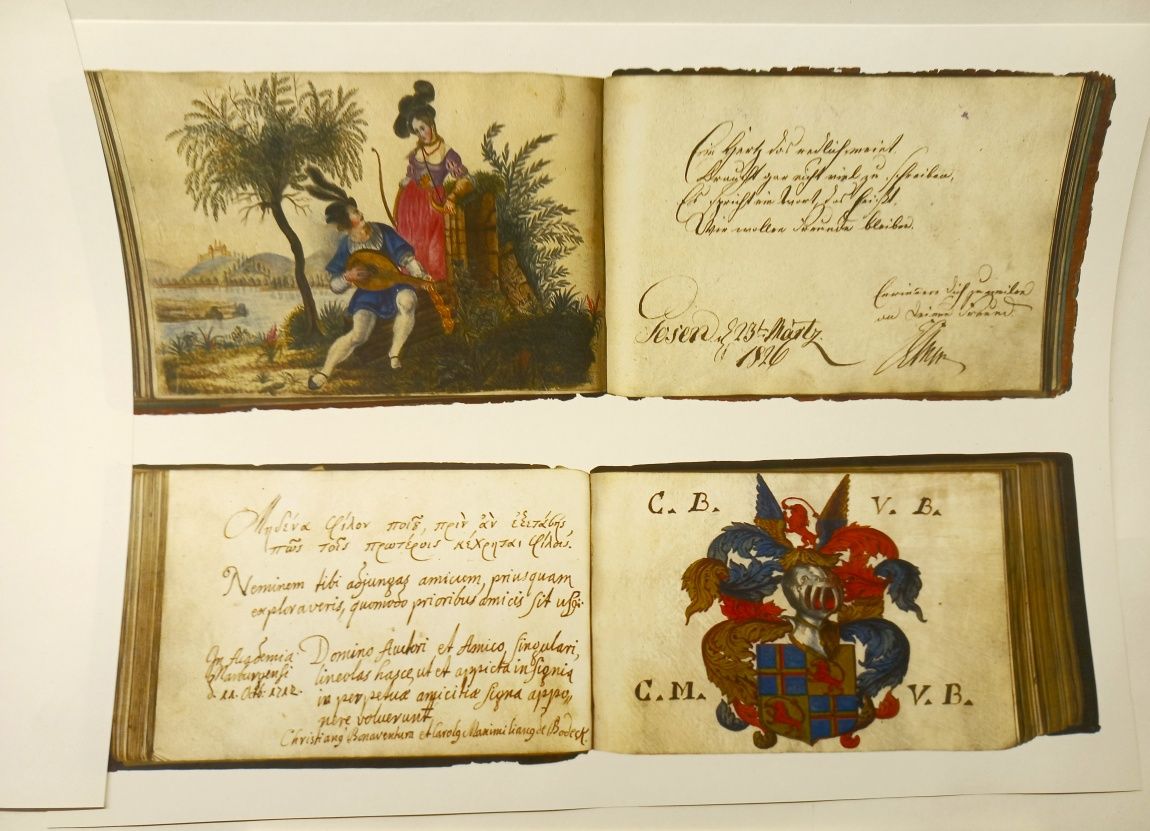 Ein Hertz das redlich meint
Braucht gar nicht viel zu schreiben,
Es spricht ein Wort, das heißt
Wir wollen Freunde bleiben.
Erinnere dich zuweilen
an Deinen Freund
Posen d. 23t. Märtz
1826
Μηδένα φίλον ποιοῦ, πρὶν ἂν ἐξετάσῃς
πῶς τοῖς προτέροις κέχρηται φίλοις.
Neminem tibi adjungas amicum, priusquam
exploraveris, quomodo prioribus amicis sit usus.
In Academia
Marburgensi
d. 11. Oct. 1712.
Domino Autori et Amico singulari,
lineolas hasce, ut et appicta insignia
in perpetuae amicitiae signa appo,
nere voluerunt
Christiang Bonaventura et Carolg Maximiliang de Bodeck.
C. B. V. B.
C. M. V. B.